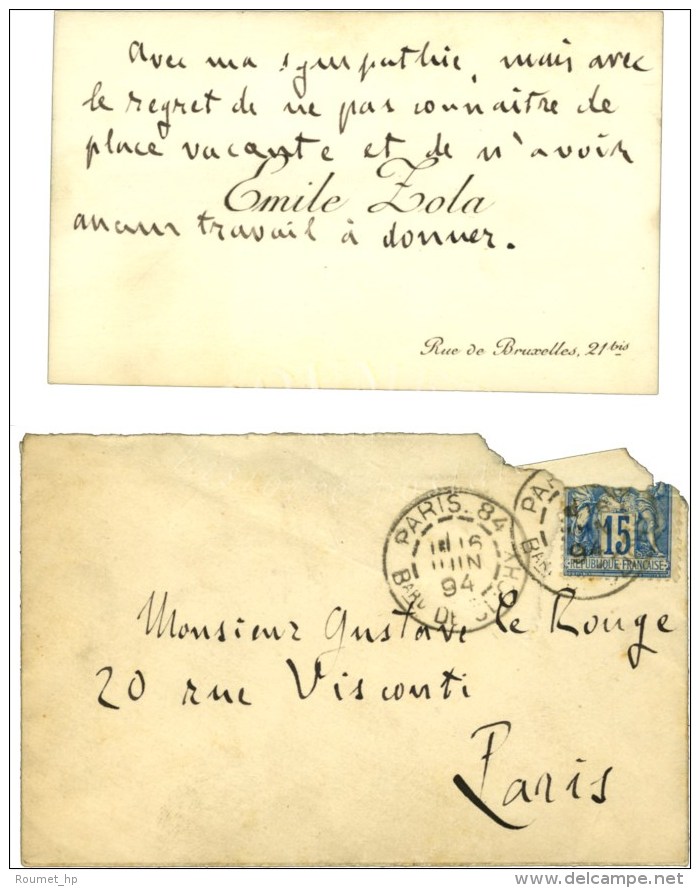 Avec ma sympathie, mais avec
le regret de ne pas connaître de
place vacante et de n'avoir
Emile Zola
aucun travail à donner.
Rue de Bruxelles, 21 bis
PARIS. 84
16
JUIN
94
BARD DE CLICHY
PAR
15
94
BARD
REPUBLIQUE FRANÇAISE
Monsieur Gustave Le Rouge
20 rue Visconti
Paris
Roumet_hp
delcampe.net